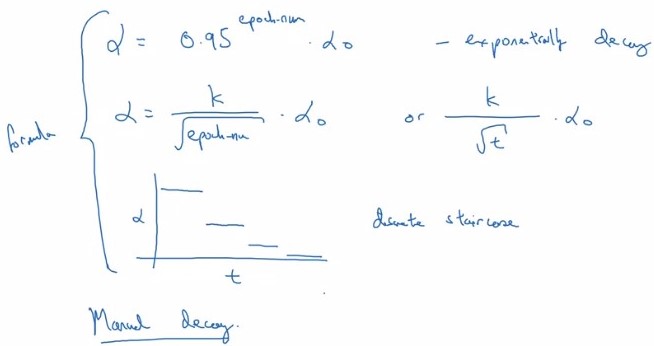 α = 0.95^epoch-num · α₀ - exponentially decay
formula
α = k / √epoch-num · α₀ or k / √t · α₀
α
discrete staircase
t
Manual decay.